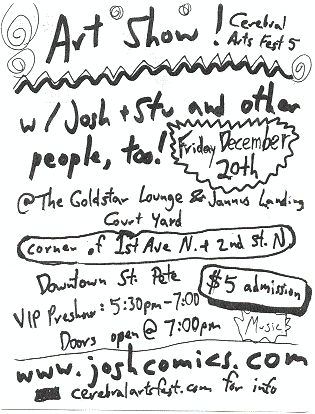 Art Show! Cerebral
Arts Fest 5
w/ Josh + Stu and other
people, too!
Friday December
20th
@ The Goldstar Lounge & Jannus Landing
Court Yard
corner of 1st Ave N. + 2nd St. N
Downtown St. Pete
$5 admission
VIP Preshow: 5:30pm-7:00
Doors open @ 7:00pm
Music
www.joshcomics.com
cerebralartsfest.com for info